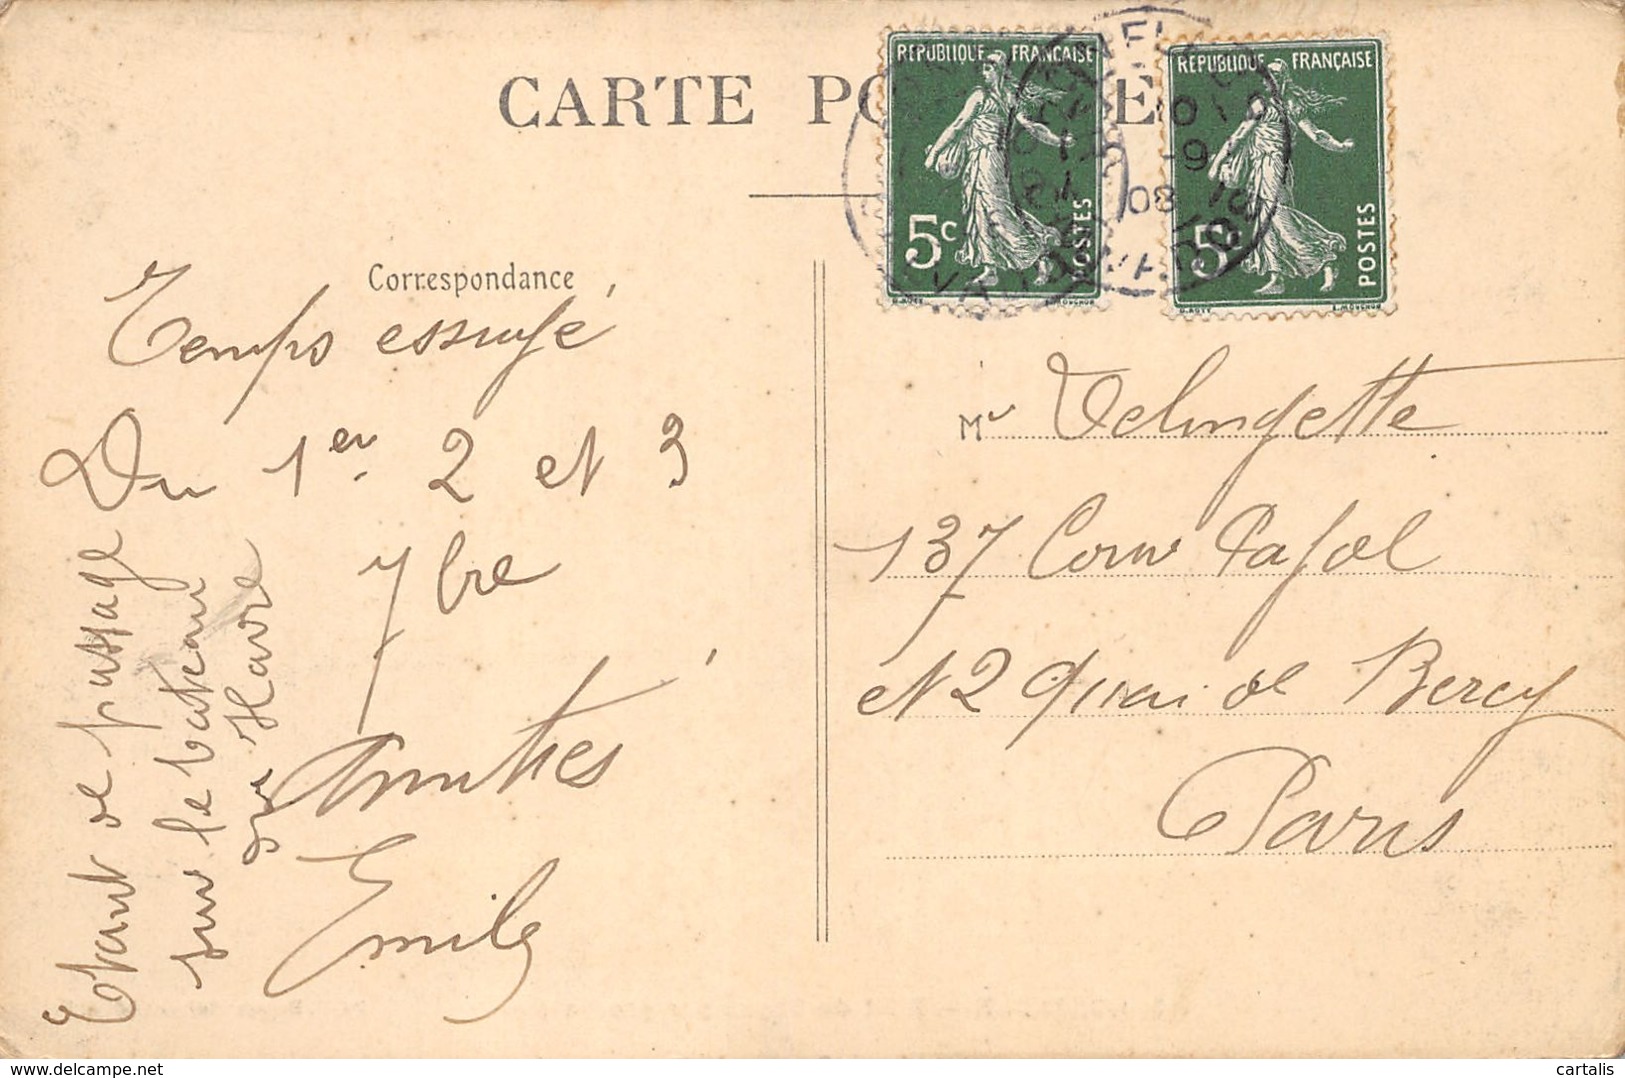 CARTE PO E
RÉPUBLIQUE FRANÇAISE
5c
POSTES
RÉPUBLIQUE FRANÇAISE
5
POSTES
9
08
Correspondance
Temps essuyé
Du 1er 2 et 3
7bre
Amitiés
Emile
Etant de passage
sur le bateau
du Havre
Mr
137 Cour Pajol
et 2 Quai de Bercy
Paris
delcampe.net
cartalis